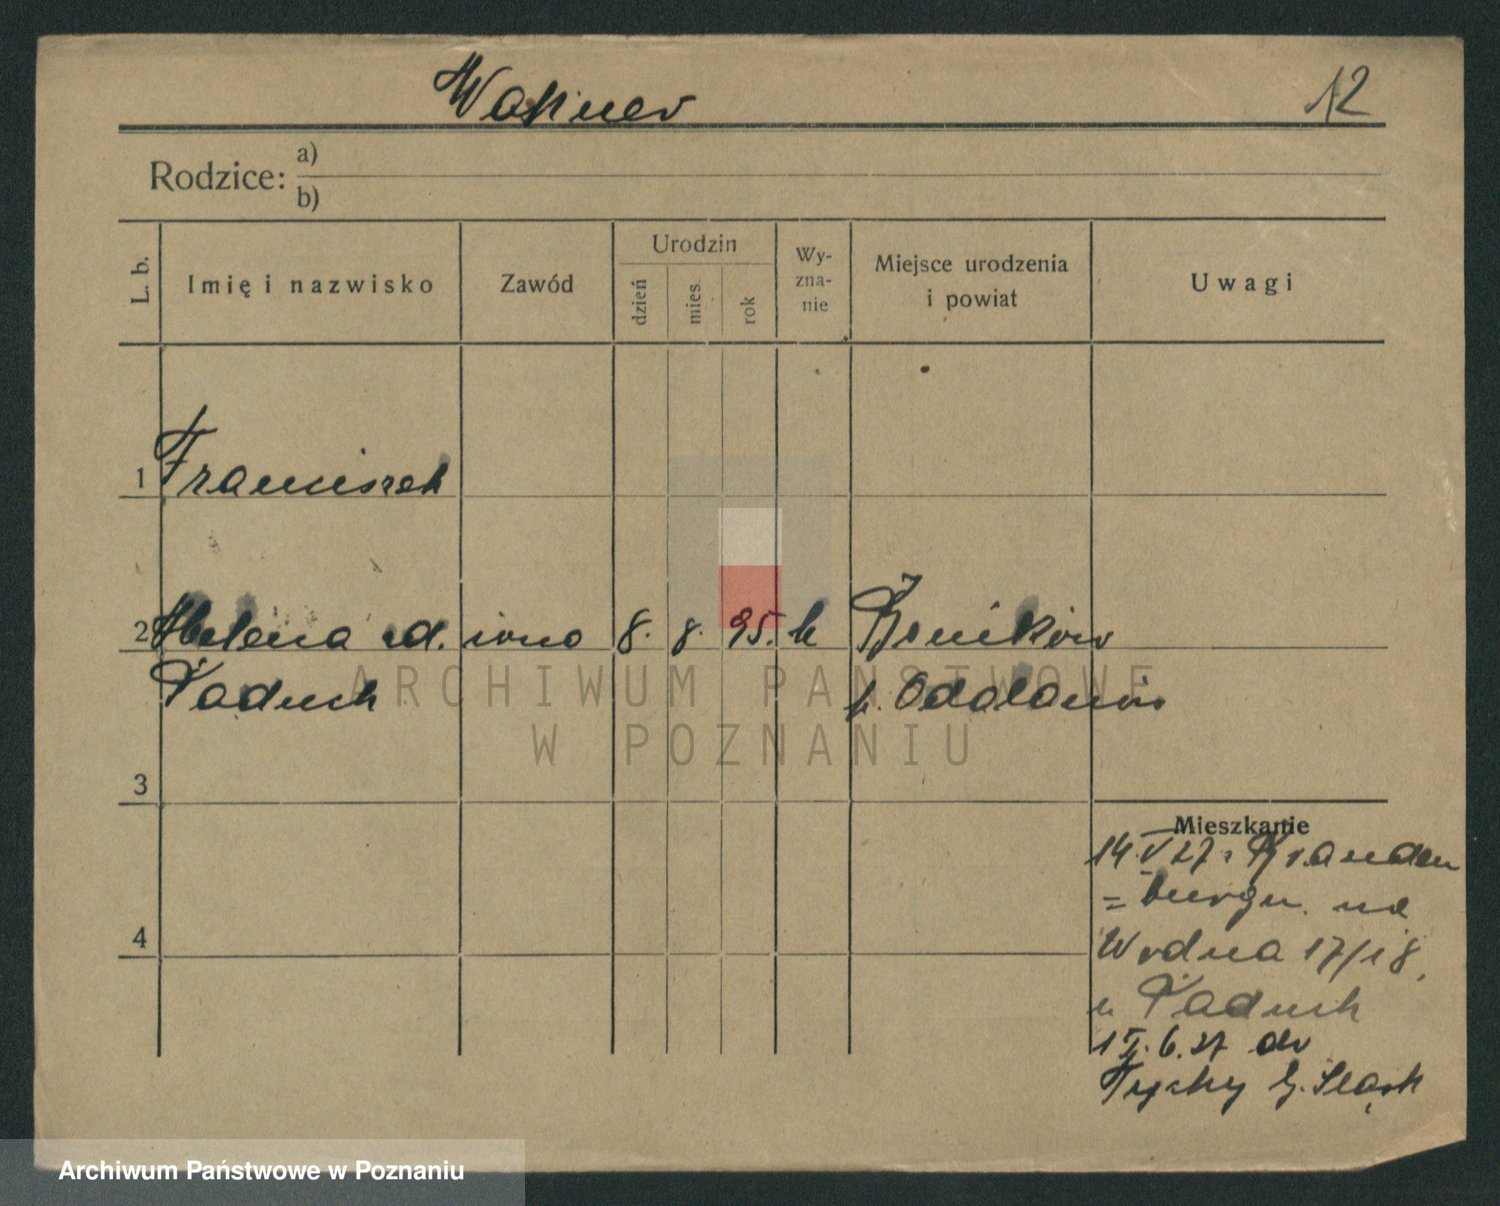 12
Rodzice: a)
b)
L. b.
Imię i nazwisko
Zawód
Urodzin
dzień
mies.
rok
Wy-
zna-
nie
Miejsce urodzenia
i powiat
Uwagi
1 Franciszek
2 Helena zd. żona 8. 8. 95. k
Paduch p. Odolanów
3
4
Mieszkanie
14.V 27. z Branden
= burgu. na
Wodna 17/18,
u Paduch
6.27 do
Tychy G. Śląsk
ARCHIWUM PAŃSTWOWE
W POZNANIU
Archiwum Państwowe w Poznaniu